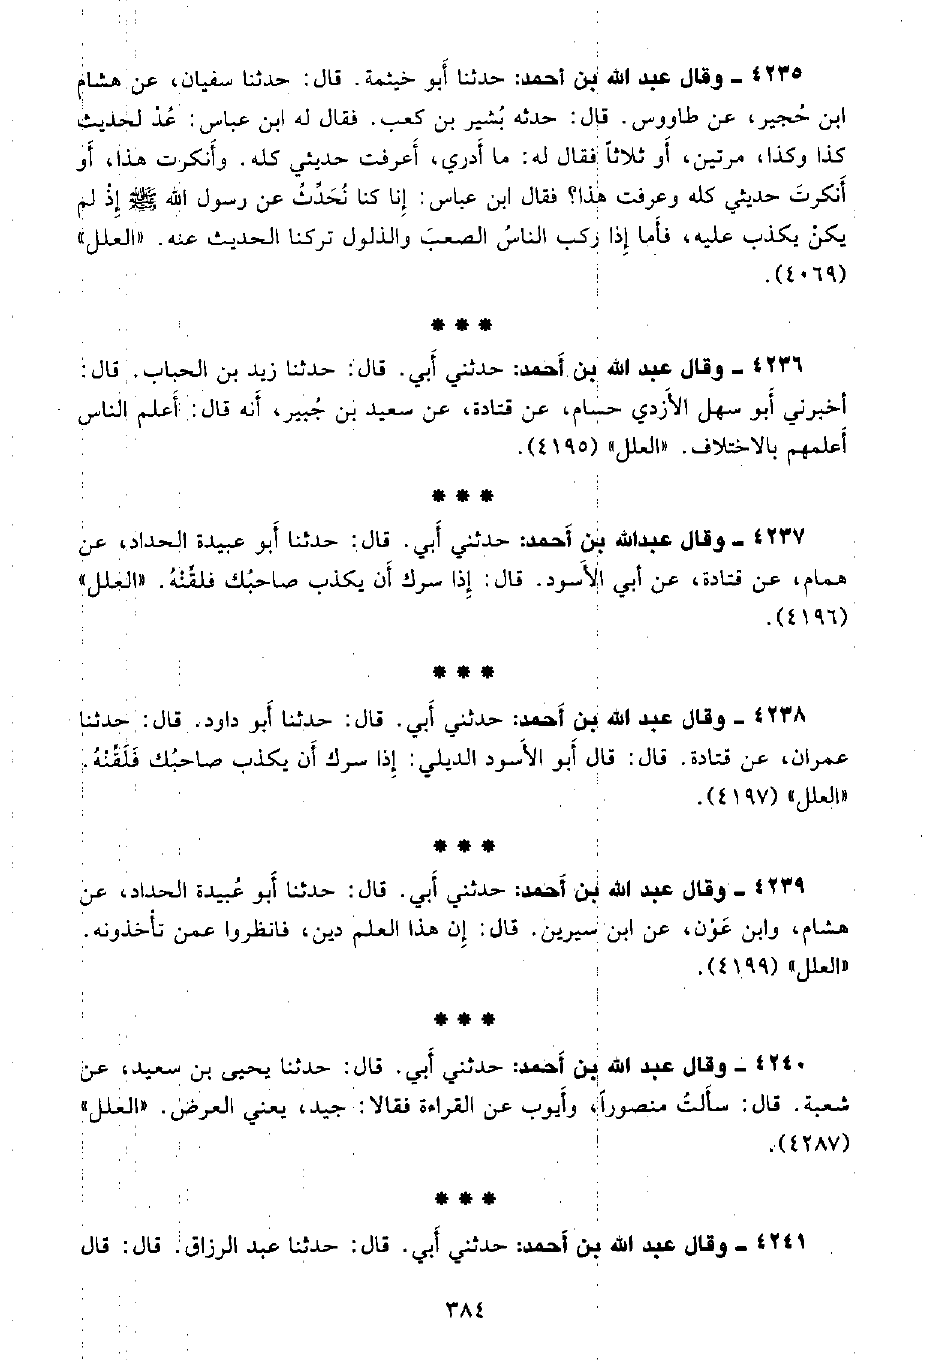 ٤٢٣٥ ـ وقال عبد الله بن أحمد: حدثنا أبو خيثمة. قال: حدثنا سفيان، عن هشام
ابن حُجير، عن طاووس. قال: حدثه بُشير بن كعب. فقال له ابن عباس: عُدْ لحديث
كذا وكذا، مرتين، أو ثلاثاً فقال له: ما أدري، أعرفت حديثي كله. وأنكرت هذا، أو
أنكرتَ حديثي كله وعرفت هذا؟ فقال ابن عباس: إنا كنا نُحَدِّثُ عن رسول الله ﷺ إذْ لم
يكنْ يكذب عليه، فأما إذا ركب الناسُ الصعبَ والذلول تركنا الحديث عنه. «العلل»
(٤٠٦٩).
* * *
٤٢٣٦ ـ وقال عبد الله بن أحمد: حدثني أبي. قال: حدثنا زيد بن الحباب. قال:
أخبرني أبو سهل الأزدي حسام، عن قتادة، عن سعيد بن جُبير، أنه قال: أعلم الناس
أعلمهم بالاختلاف. «العلل» (٤١٩٥).
* * *
٤٢٣٧ ـ وقال عبدالله بن أحمد: حدثني أبي. قال: حدثنا أبو عبيدة الحداد، عن
همام، عن قتادة، عن أبي الأسود. قال: إذا سرك أن يكذب صاحبُك فلقِّنْهُ. «العلل»
(٤١٩٦).
* * *
٤٢٣٨ ـ وقال عبد الله بن أحمد: حدثني أبي. قال: حدثنا أبو داود. قال: حدثنا
عمران، عن قتادة. قال: قال أبو الأسود الديلي: إذا سرك أن يكذب صاحبُك فَلَقِّنْهُ.
«العلل» (٤١٩٧).
* * *
٤٢٣٩ ـ وقال عبد الله بن أحمد: حدثني أبي. قال: حدثنا أبو عُبيدة الحداد، عن
هشام، وابن عَوْن، عن ابن سيرين. قال: إن هذا العلم دين، فانظروا عمن تأخذونه.
«العلل» (٤١٩٩).
* * *
٤٢٤٠ ـ وقال عبد الله بن أحمد: حدثني أبي. قال: حدثنا يحيى بن سعيد، عن
شعبة. قال: سألتُ منصوراً، وأيوب عن القراءة فقالا: جيد، يعني العرض. «العلل»
(٤٢٨٧).
* * *
٤٢٤١ ـ وقال عبد الله بن أحمد: حدثني أبي. قال: حدثنا عبد الرزاق. قال: قال
٣٨٤